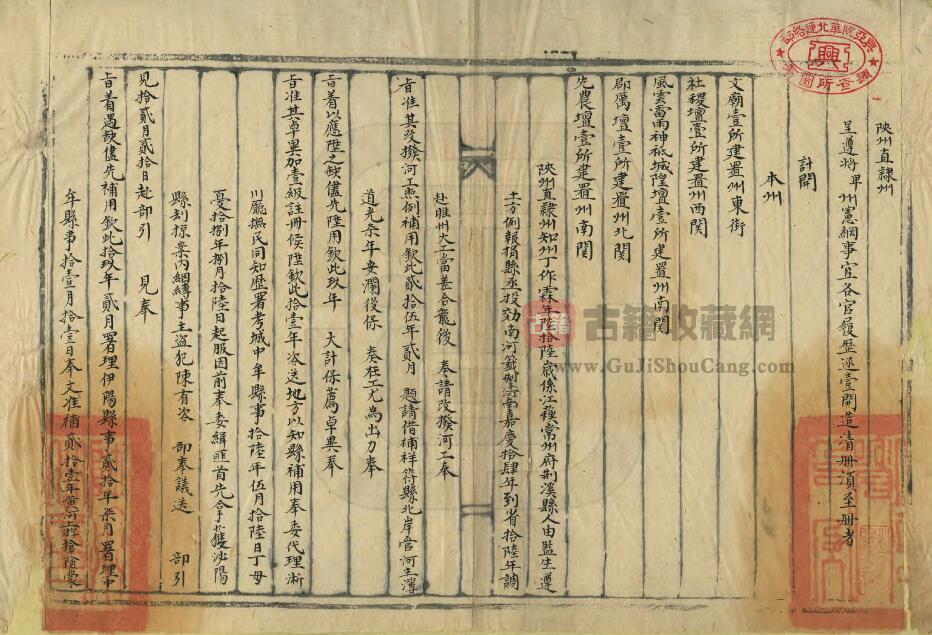 陝州直隸州
呈遵將卑州憲綱事宜各官履歷逐壹開造清冊須至冊者
計開
本州
文廟壹所建置州東街
社稷壇壹所建置州西関
風雲雷雨神祇城隍壇壹所建置州南関
郡厲壇壹所建置州北関
先農壇壹所建置州南関
陝州直隸州知州丁作霖年陸拾陸歲係江蘇常州府荆溪縣人由監生遵
土方例報捐縣丞投効南河籤掣河南嘉慶拾肆年到省拾陸年調
赴睢州大工當差合龍後 奏請改撥河工奉
旨准其改撥河工照例補用欽此貳拾伍年貳月 題請借補祥符縣北岸管河主簿
道光柒年安瀾後保 奏在工尤為出力奉
旨着以應陞之缺儘先陞用欽此玖年 大計保薦卓異奉
旨准其卓異加壹級註冊候陞欽此拾壹年咨送地方以知縣補用奉委代理淅
川廳撫民同知歷署考城中牟縣事拾陸年伍月拾陸日丁母
憂拾捌年捌月拾陸日起服因前奉委緝匪首先拿獲泌陽
縣刦掠案內綑縳事主盜犯陳有咨 部奉議送 部引
見拾貳月貳拾日赴部引 見奉
旨着遇缺儘先補用欽此拾玖年貳月署理伊陽縣事貳拾年柒月署理中
牟縣事拾壹月拾壹日奉文准補貳拾壹年黃河上游搶險蒙
興亞院華北連絡部
調查所圖書
興
古籍
古籍收藏網
www.GuJiShouCang.com